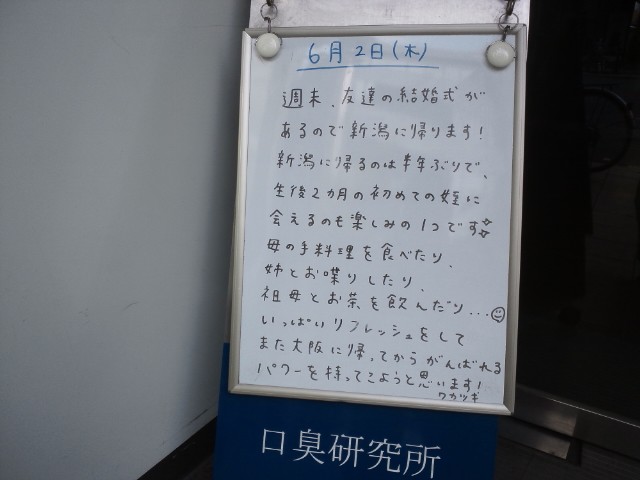 6月2日(木)
週末、友達の結婚式が
あるので新潟に帰ります!
新潟に帰るのは半年ぶりで、
生後2カ月の初めての姪に
会えるのも楽しみの1つです☆
母の手料理を食べたり、
姉とお喋りしたり、
祖母とお茶を飲んだり...☺
いっぱいリフレッシュをして
また大阪に帰ってからがんばれる
パワーを持ってこようと思います!
ワカツキ
口臭研究所